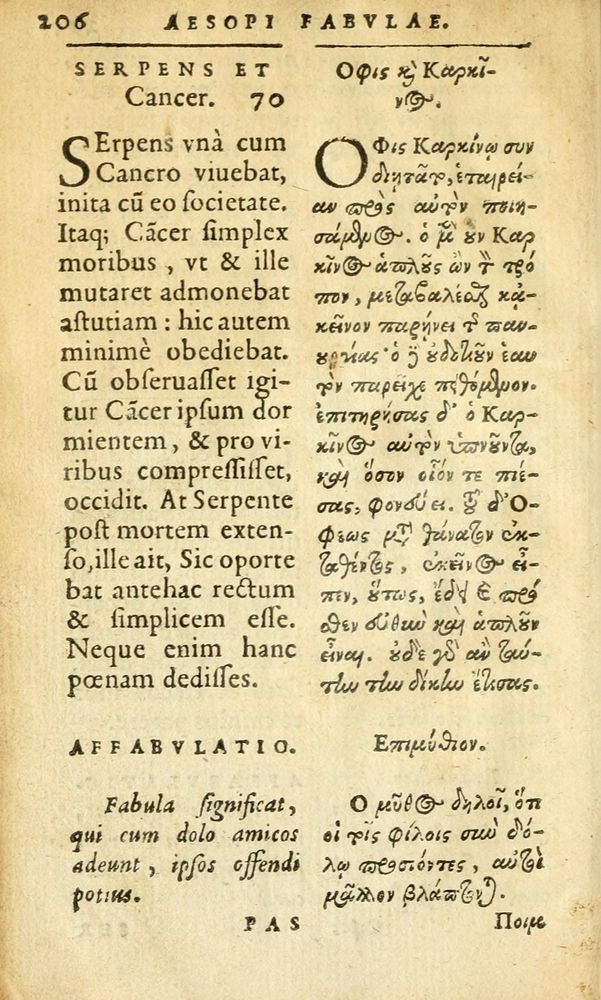 206 AESOPI FABVLAE.
SERPENS ET
Cancer. 70
SErpens vnà cum
Cancro viuebat,
inita cũ eo societate.
Itaq; Cãcer simplex
moribus, vt & ille
mutaret admonebat
astutiam: hic autem
minimè obediebat.
Cũ obseruasset igi-
tur Cãcer ipsum dor
mientem, & pro vi-
ribus compressisset,
occidit. At Serpente
post mortem exten-
so, ille ait, Sic oporte
bat antehac rectum
& simplicem esse.
Neque enim hanc
pœnam dedisses.
AFFABVLATIO.
Fabula significat,
qui cum dolo amicos
adeunt, ipsos offendi
potius.
PAS
Οφις καὶ Καρκῖ-
νος.
ΟΦις Καρκίνῳ συν
διητᾶτο, ἑταιρεί-
αν πρὸς αὐτὸν ποιη-
σάμενος. ὁ μὲν οὖν Καρ
κῖνος ἁπλοῦς ὢν τὸν τρό
πον, μεταβαλέσθαι κἀ-
κεῖνον παρῄνει τῆς παν-
ουργίας· ὁ δὲ οὐδοτιοῦν ἑαυ
τὸν παρεῖχε πειθόμενον.
ἐπιτηρήσας δ' ὁ Καρ-
κῖνος αὐτὸν ὑπνοῦντα,
καὶ ὅσον οἷόν τε πιέ-
σας, φονεύει. τοῦ δ' Ο-
φεως μετὰ θάνατον ἐκ-
ταθέντος, ἐκεῖνος εἶ-
πεν, οὕτως, ἔδει καὶ πρό
σθεν εὐθὺν καὶ ἁπλοῦν
εἶναι. οὐδὲ γὰρ ἂν ταύ-
την τὴν δίκην ἔτισας.
Επιμύθιον.
Ο μῦθος δηλοῖ, ὅτι
οἱ τοῖς φίλοις σὺν δό-
λῳ προσιόντες, αὐτοὶ
μᾶλλον βλάπτονται.
Ποιμε